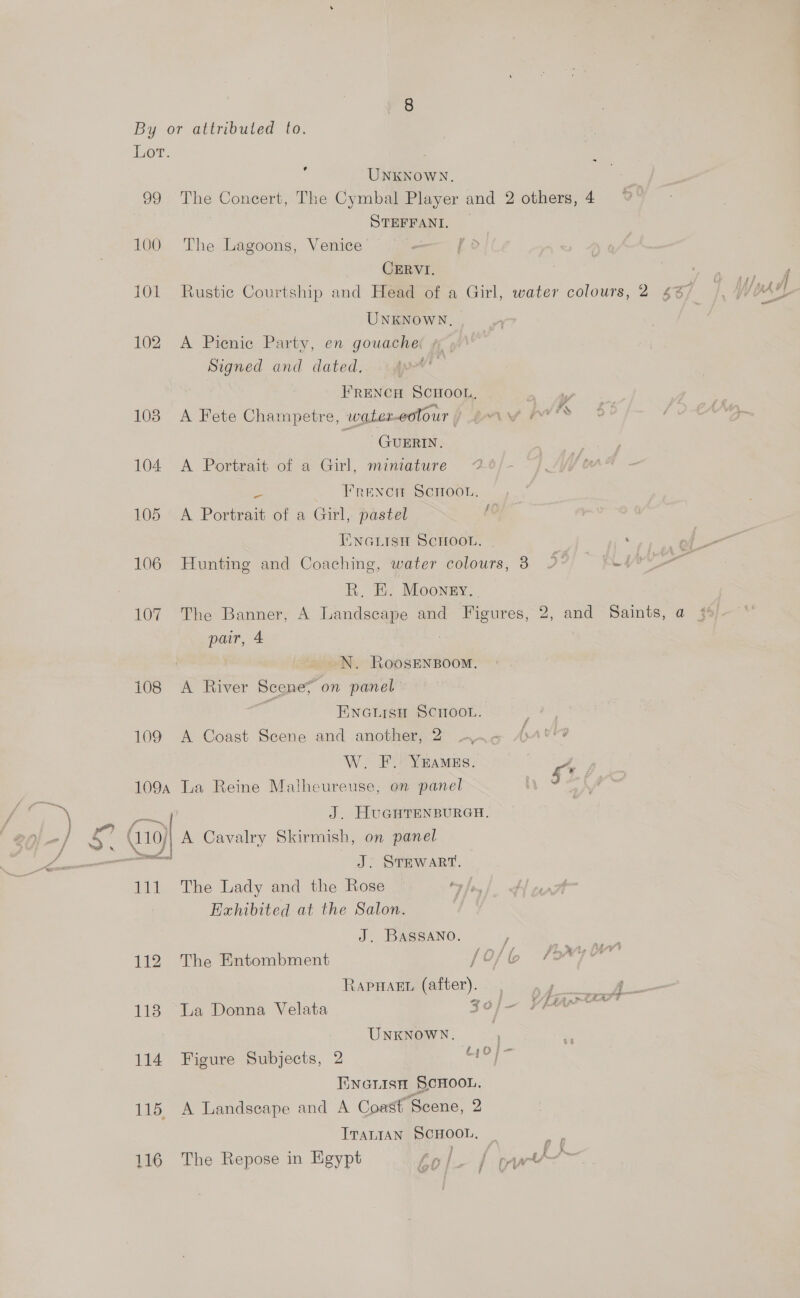 8
By or attributed to.
Lot.
Unknown.
99 The Concert, The Cymbal Player and 2 others, 4
Steffani.
100 The Lagoons, Venice
Cervi.
101 Rustic Courtship and Head of a Girl, water colours, 2
Unknown.
102 A Picnic Party, en gouache
Signed and dated.
French School.
103 A Fete Champetre, water-colour
Guerin.
104 A Portrait of a Girl, miniature
French School.
105 A Portrait of a Girl, pastel
English School.
106 Hunting and Coaching, water colours, 3
R. E. Mooney.
107 The Banner, A Landscape and Figures, 2, and Saints, a
pair, 4
N. Roosenboom.
108 A River Scene, on panel
English School.
109 A Coast Scene and another, 2
W. F. Yeames.
109A La Reine Malheureuse, on panel
J. Hughtenburgh.
110 A Cavalry Skirmish, on panel
J. Stewart.
111 The Lady and the Rose
Exhibited at the Salon.
J. Bassano.
112 The Entombment 10/6
Raphael (after).
113 La Donna Velata 30/-
Unknown.
114 Figure Subjects, 2
English School.
115 A Landscape and A Coast Scene, 2
Italian School.
116 The Repose in Egypt